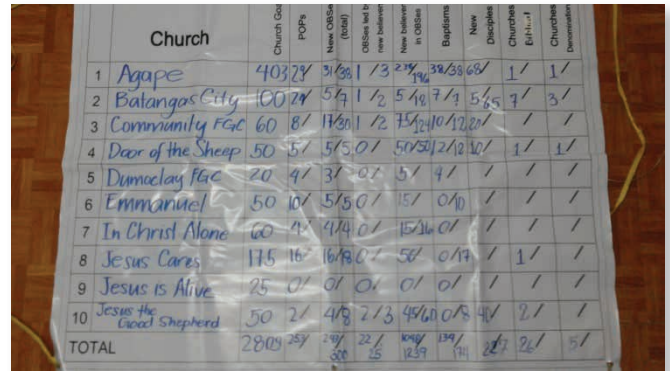 Church Church Goal POPs New OBSes (total) OBSes led by new believers New believers in OBSes Baptisms New Disciples Churches Biblical Churches Denomination
1 Agape 403 29/ 31/38 1/3 239/196 38/38 68/ 1/ 1/
2 Batangas City 100 29/ 5/7 1/2 5/18 7/7 5/65 7/ 3/
3 Community FGC 60 8/ 17/30 1/2 75/124 10/12 20/ / /
4 Door of the Sheep 50 5/ 5/5 0/ 50/50 12/12 10/ 1/ 1/
5 Dumaclay FGC 20 4/ 3/ 0/ 5/ 4/ / / /
6 Emmanuel 50 10/ 5/5 0/ 15/ 0/10 / / /
7 In Christ Alone 60 4/ 4/4 0/ 15/16 0/ / / /
8 Jesus Cares 175 16/ 16/18 0/ 56/ 0/17 / 1/ /
9 Jesus is Alive 25 0/ 0/ 0/ 0/ 0/ / / /
10 Jesus the Good Shepherd 50 2/ 4/8 2/3 45/60 0/8 40/ 2/ /
TOTAL 2809 257/ 22/25 139/174 26/ 5/